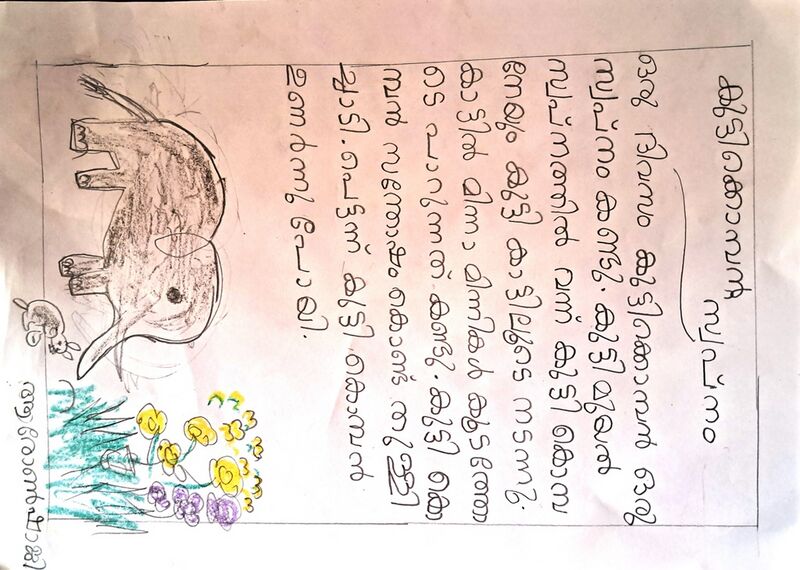 കുട്ടിക്കൊമ്പൻ
സ്വപ്നം
ഒരു ദിവസം കുട്ടിക്കൊമ്പൻ ഒരു
സ്വപ്നം കണ്ടു. കുട്ടി മുയൽ
സ്വപ്നത്തിൽ വന്ന് കുട്ടി കൊമ്പ
നേയും കൂട്ടി കാട്ടിലൂടെ നടന്നു.
കാട്ടിൽ മിന്നാ മിന്നികൾ കൂട്ടത്തോ
ടെ പാറുന്നത് കണ്ടു. കുട്ടി കൊ
മ്പൻ സന്തോഷം കൊണ്ട് തുള്ളി
ച്ചാടി. പെട്ടന്ന് കുട്ടി കൊമ്പൻ
ഉണർന്നു പോയി.